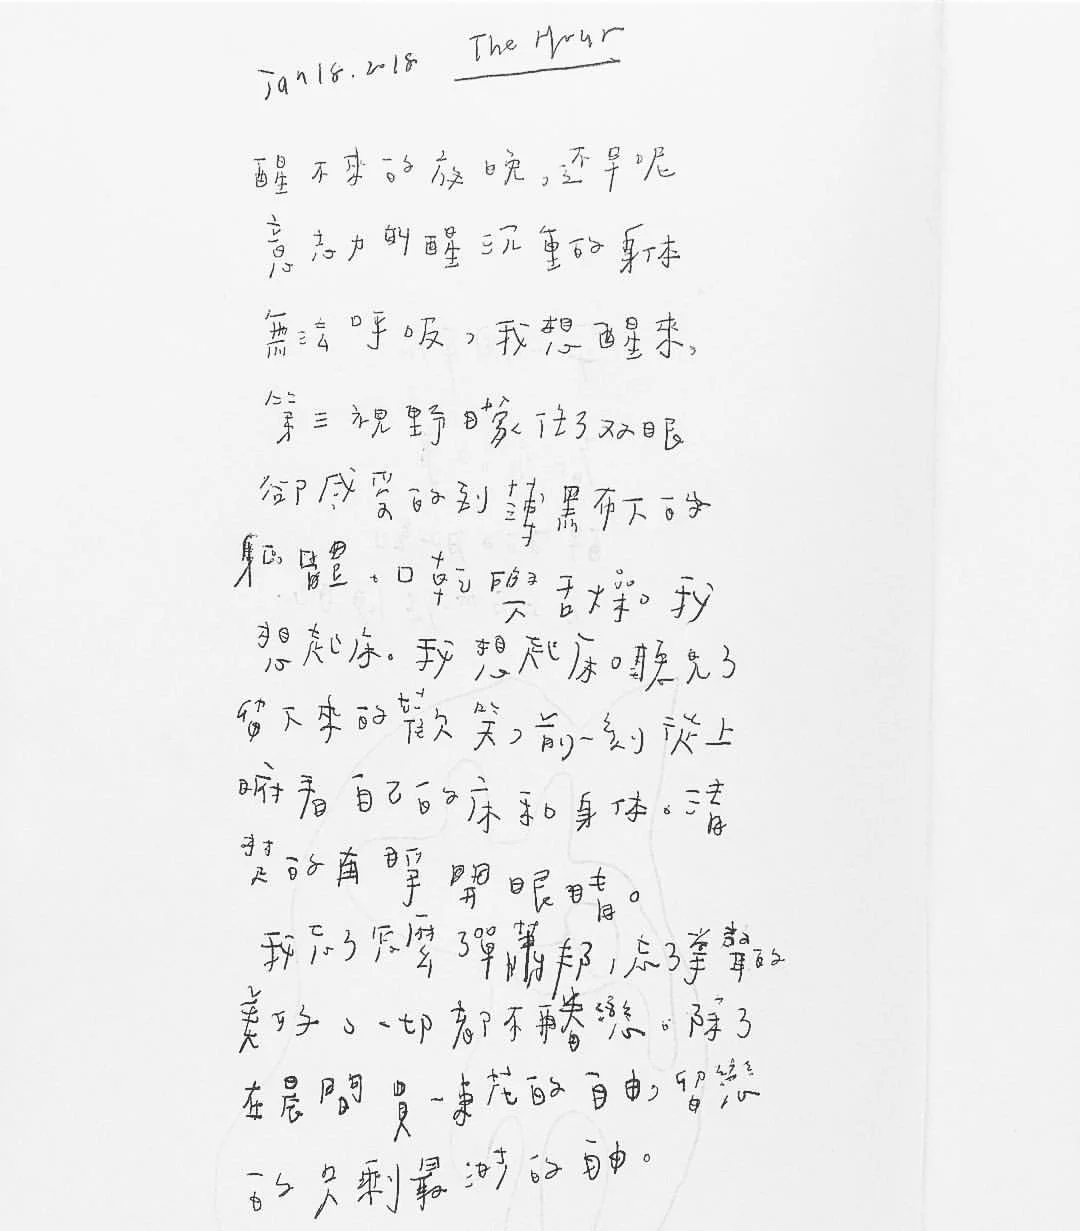 The Hour
Jan 18. 2018
醒不來的夜晚,还早呢
意志力的醒沉重的身体
無法呼吸,我想醒來,
第三視野矇住了双眼
卻感受的到薄黑布下的
軀體。口乾與舌燥。我
想起床。我想起床。聽見了
留下來的歡笑,前一刻從上
俯看自己的床和身体。清
楚的再睜開眼睛。
我忘了怎麼彈蕭邦,忘了掌聲的
美好。一切都不再眷戀。除了
在晨間買一束花的自由,留戀
的只剩最涉的自由。